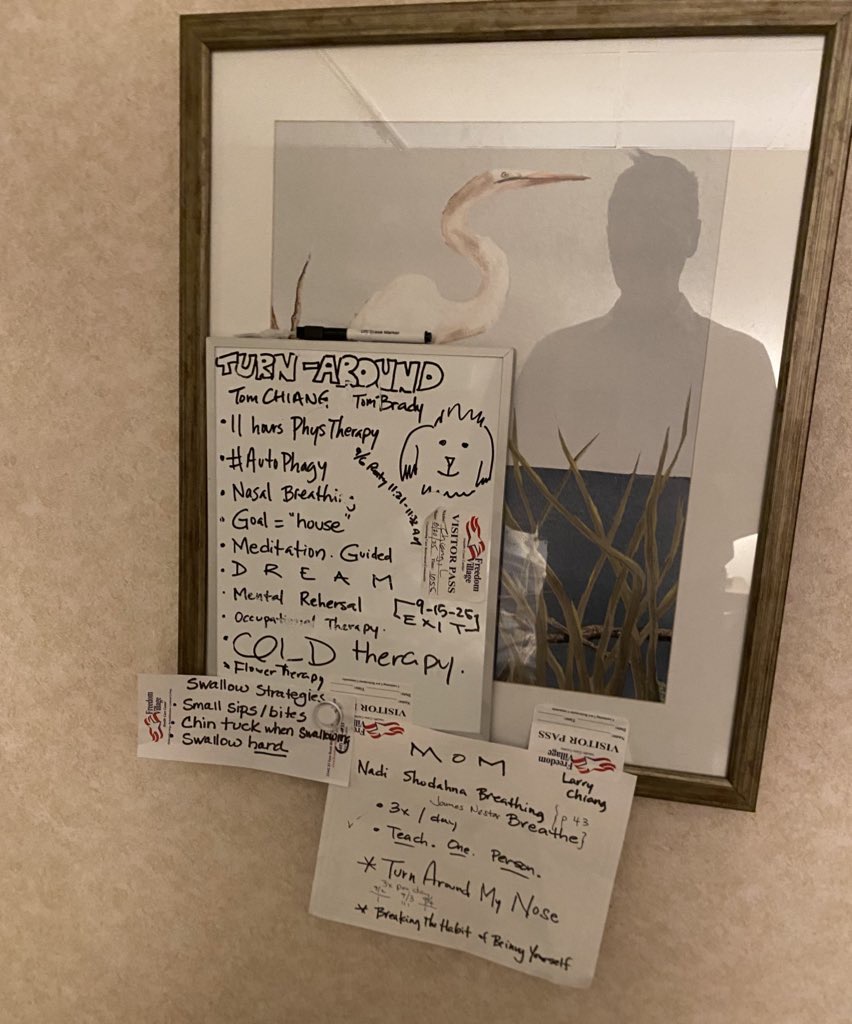 TURN-AROUND
Tom CHIANG Tom Brady
• 11 hours Phys Therapy
• #AutoPhagy
• Nasal Breathi
• Goal = "house"
• Meditation. Guided
• D R E A M
• Mental Rehersal
• Occupational Therapy.
• COLD therapy.
• Flower Therapy
11:21-11:38 AM
[9-15-25]
EXIT
VISITOR PASS
Freedom Village
Swallow Strategies
• Small sips/bites
• Chin tuck when swallowing
• Swallow hard
Freedom Village
VISITOR
VISITOR PASS
Freedom Village
Larry Chiang
MOM
Nadi Shodahna Breathing
James Nestor Breathe} {p 43
• 3x / day
• Teach. One. Person.
* Turn Around My Nose
3x per day
9/3
* Breaking The Habit of Being Yourself